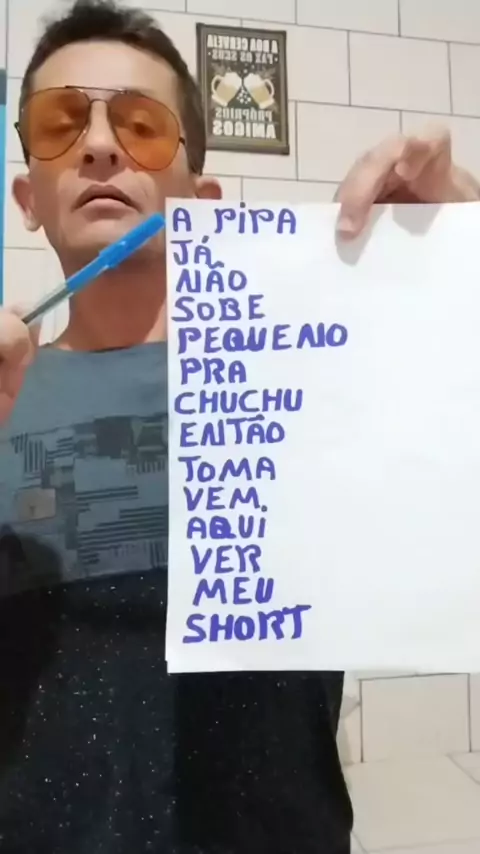 A BOA CERVEJA
FAZ OS SEUS
PRÓPRIOS
AMIGOS
A PIPA
JÁ
NÃO
SOBE
PEQUENO
PRA
CHUCHU
ENTÃO
TOMA
VEM.
AQUI
VER
MEU
SHORT